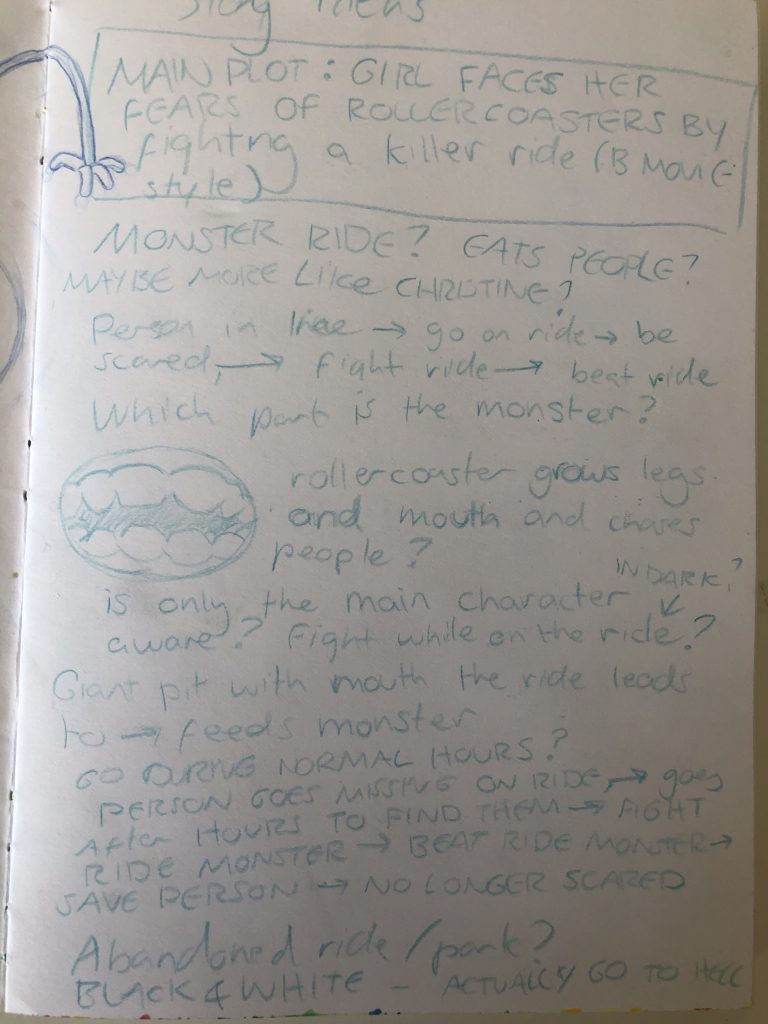 Story Ideas
MAIN PLOT : GIRL FACES HER
FEARS OF ROLLERCOASTERS BY
fighting a killer ride (B MOVIE
style)
MONSTER RIDE? EATS PEOPLE?
MAYBE MORE LIKE CHRISTINE?
Person in line → go on ride → be
scared, → fight ride → beat ride
Which part is the monster?
rollercoaster grows legs
and mouth and chases
people?
IN DARK?
is only the main character
aware? Fight while on the ride?
Giant pit with mouth the ride leads
to → feeds monster
GO DURING NORMAL HOURS?
PERSON GOES MISSING ON RIDE, → goes
After HOURS TO FIND THEM → FIGHT
RIDE MONSTER → BEAT RIDE MONSTER →
SAVE PERSON → NO LONGER SCARED
Abandoned ride/park?
BLACK & WHITE - ACTUALLY GO TO HELL